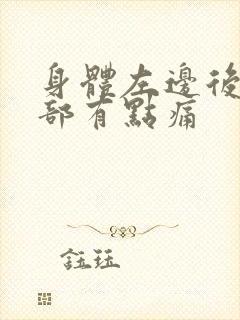 身體左邊後
部有點痛
鈺珏